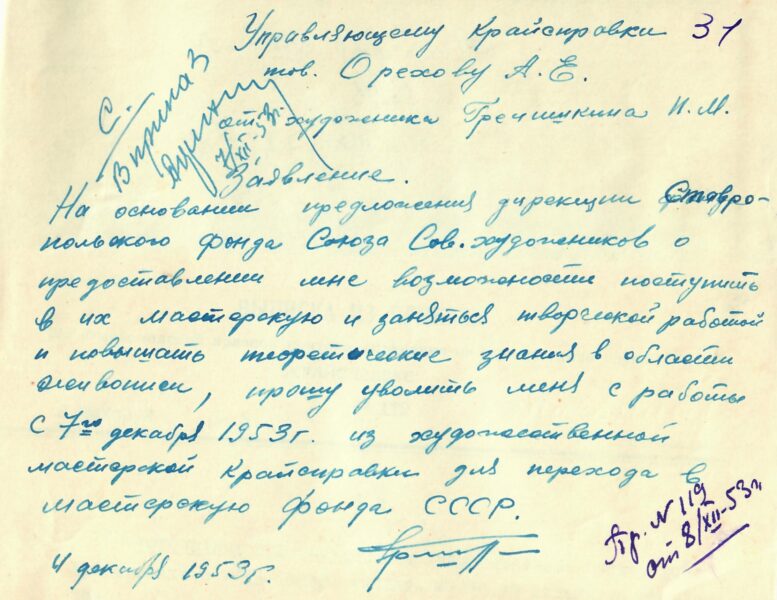 Управляющему Крайсправки 31
тов. Орехову А.Е.
от художника Гречишкина П.М.
С.
В приказ
7/XII-53г.
Заявление.
На основании предложения дирекции Ставро-
польского фонда Союза Сов. художников о
предоставлении мне возможности поступить
в их мастерскую и заняться творческой работой
и повышать теоретические знания в области
живописи, прошу уволить меня с работы
с 7го декабря 1953г. из художественной
мастерской Крайсправки для перехода в
мастерскую фонда СССР.
4 декабря 1953г.
Пр. N 119
от 8/XII-53г.